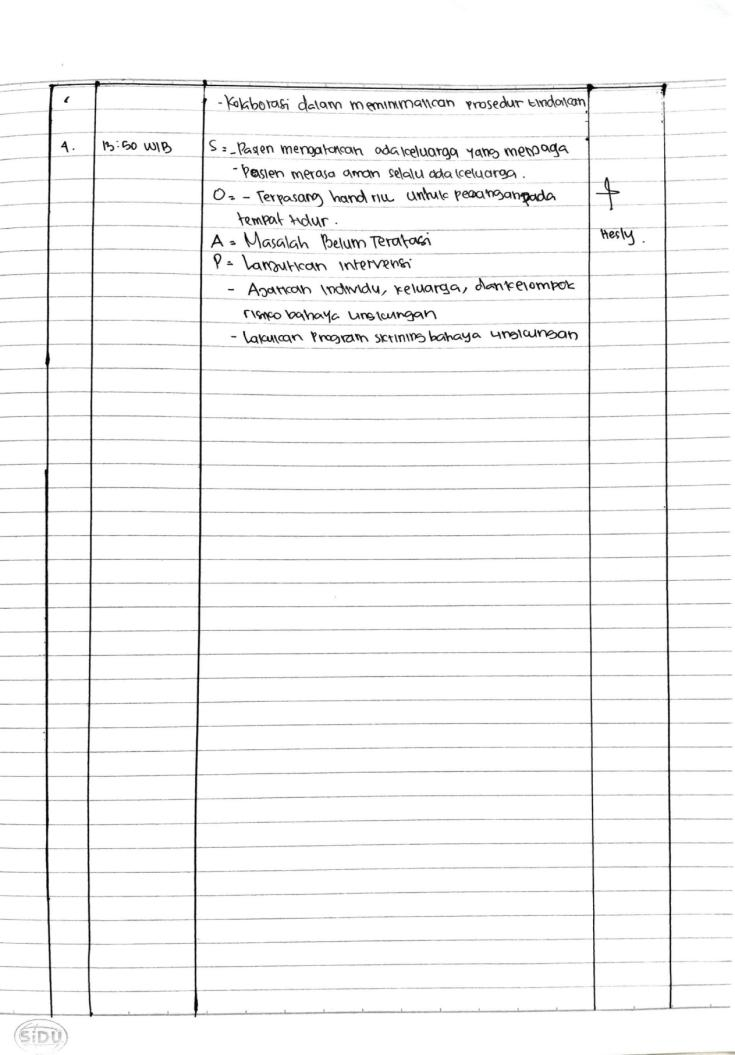 - Kolaborasi dalam meminimalkan prosedur tindakan
4. 13:50 WIB S = - Pasien mengatakan ada keluarga yang menjaga
- Pasien merasa aman selalu ada keluarga.
O = - Terpasang hand riu untuk pegangan pada
tempat tidur.
A = Masalah Belum Teratasi
Hesly.
P = Lanjutkan Intervensi
- Ajarkan Individu, keluarga, dan kelompok
risiko bahaya lingkungan
- Lakukan Program skrining bahaya lingkungan
SiDU